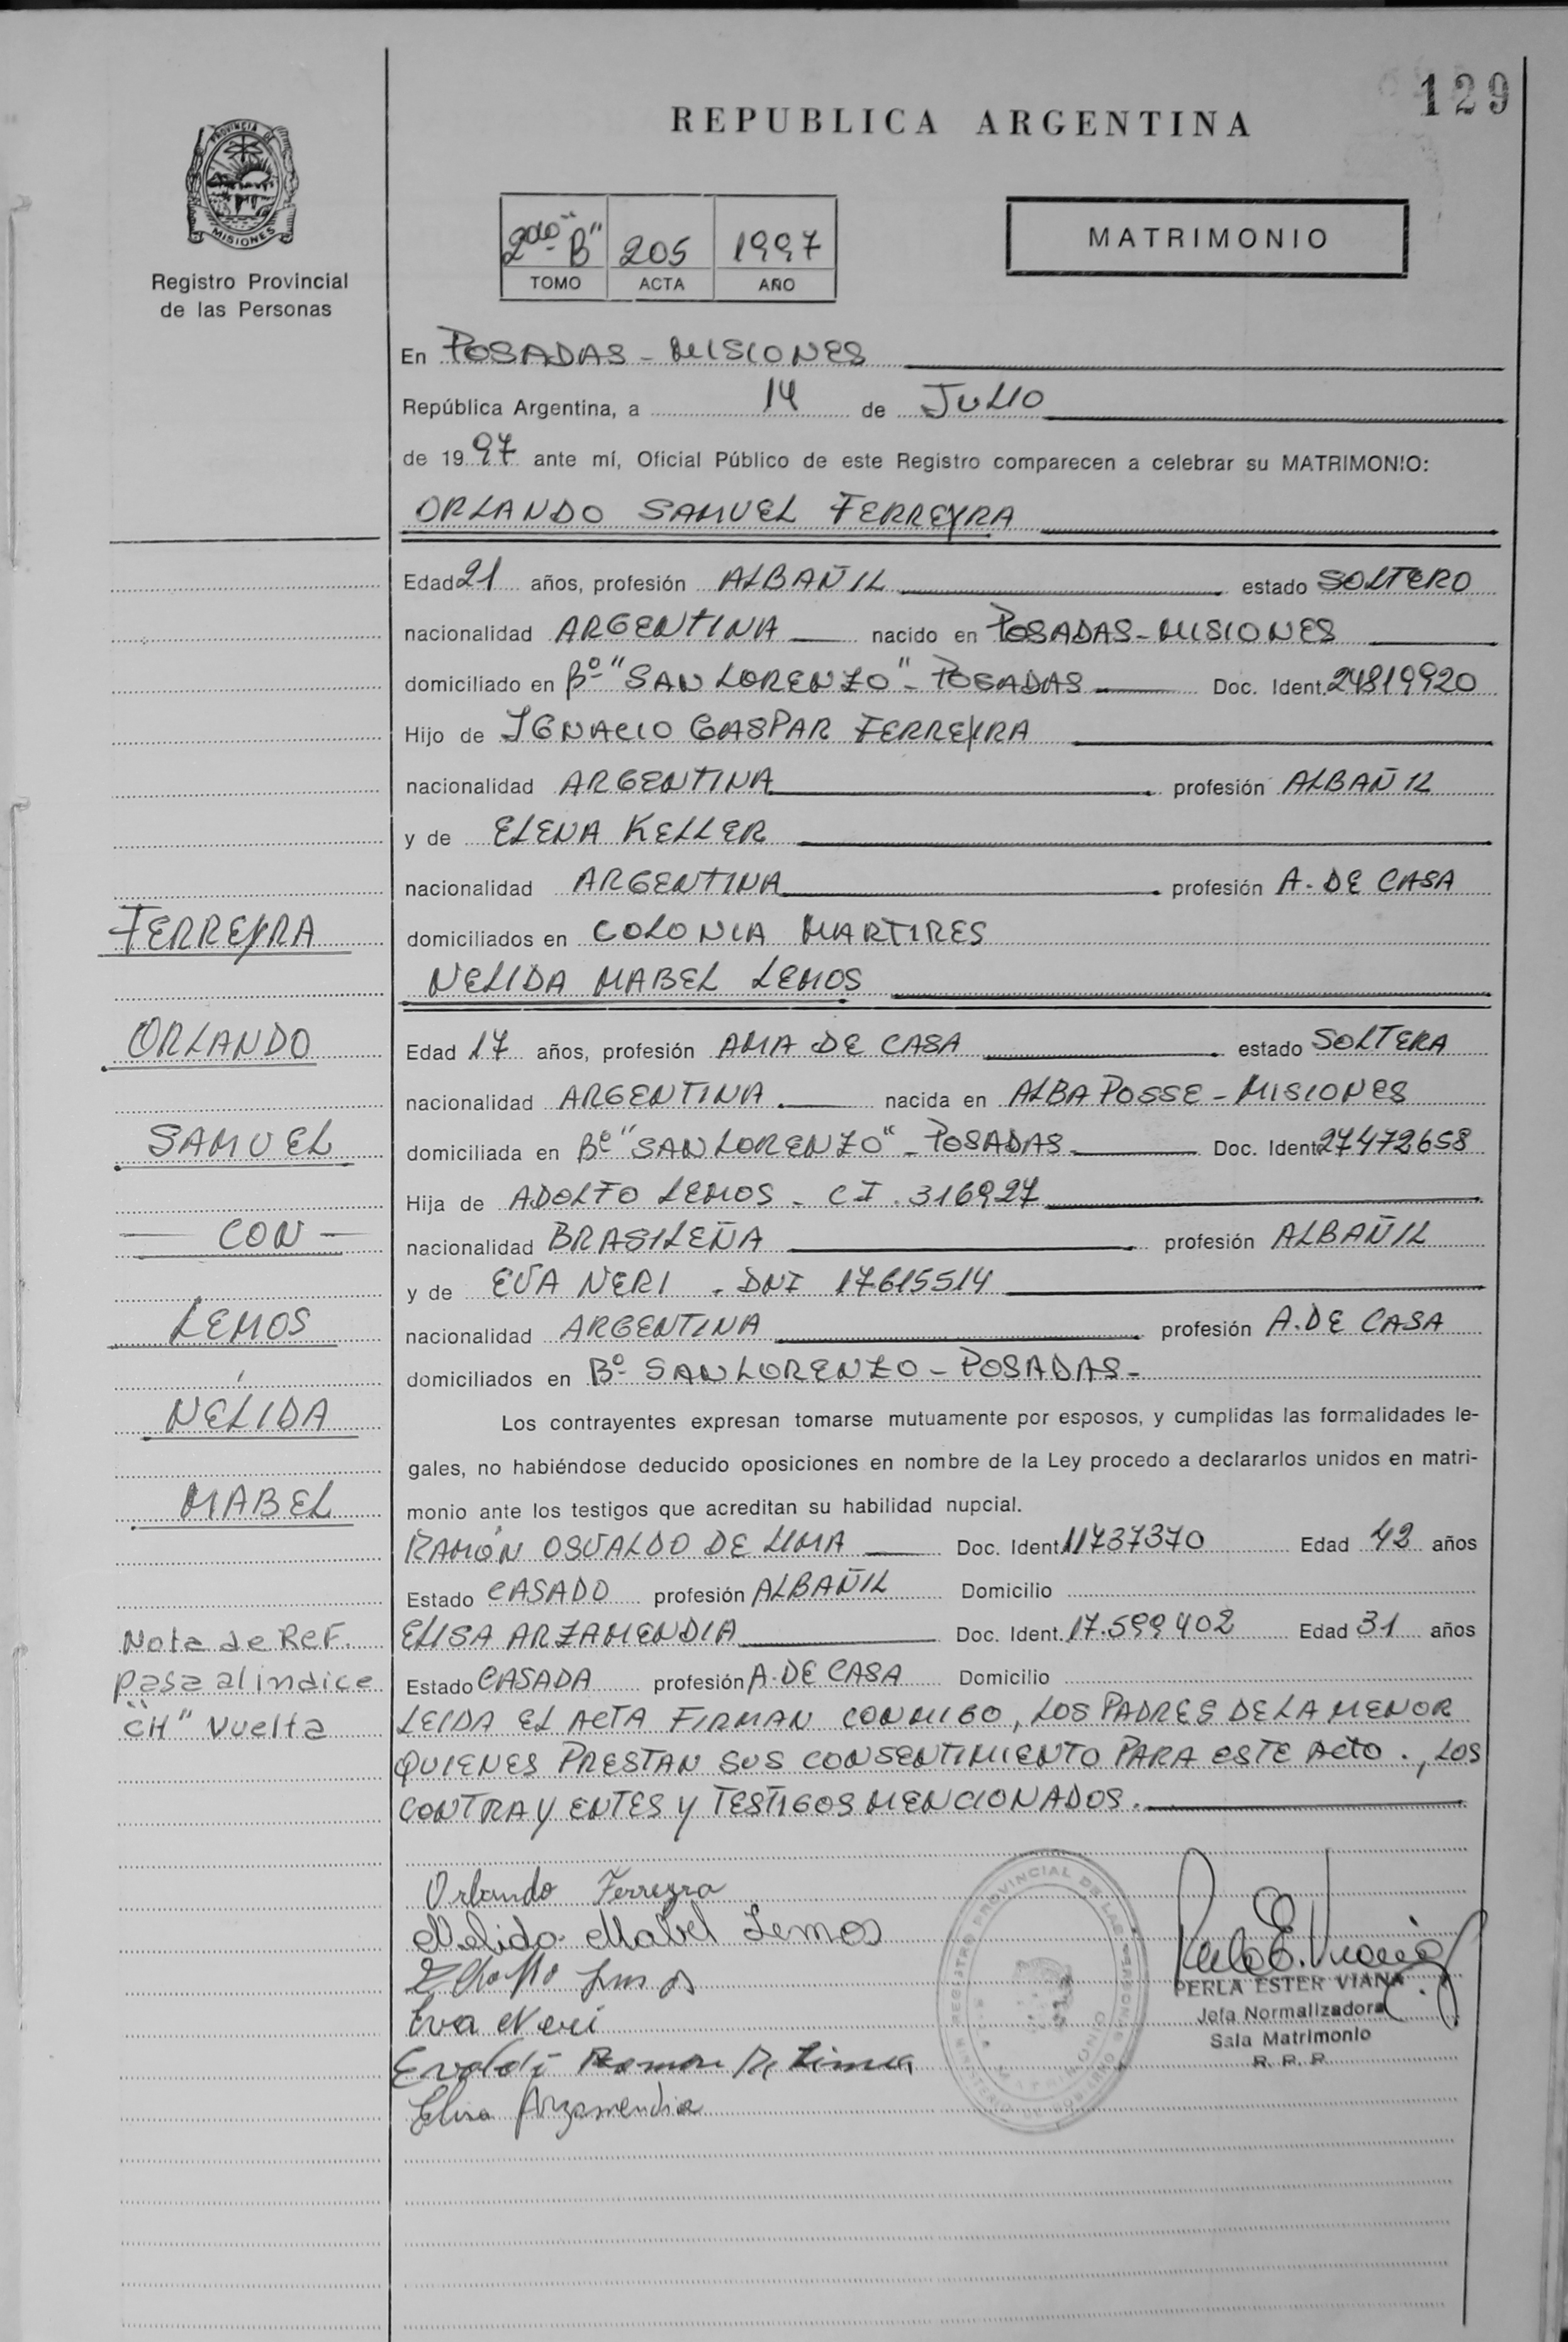 129
REPUBLICA ARGENTINA
PROVINCIA DE
MISIONES
Registro Provincial
de las Personas
2do "B" 205 1997
TOMO ACTA AÑO
MATRIMONIO
En POSADAS - MISIONES
República Argentina, a 14 de JULIO
de 1997 ante mí, Oficial Público de este Registro comparecen a celebrar su MATRIMONIO:
ORLANDO SAMUEL FERREYRA
Edad 21 años, profesión ALBAÑIL estado SOLTERO
nacionalidad ARGENTINA nacido en POSADAS - MISIONES
domiciliado en Bº "SAN LORENZO" - POSADAS Doc. Ident. 24819920
Hijo de IGNACIO GASPAR FERREYRA
nacionalidad ARGENTINA profesión ALBAÑIL
y de ELENA KELLER
nacionalidad ARGENTINA profesión A. DE CASA
domiciliados en COLONIA MARTIRES
NELIDA MABEL LEMOS
Edad 17 años, profesión AMA DE CASA estado SOLTERA
nacionalidad ARGENTINA nacida en ALBA POSSE - MISIONES
domiciliada en Bº "SAN LORENZO" - POSADAS Doc. Ident. 27472658
Hija de ADOLFO LEMOS - CI. 316927
nacionalidad BRASILEÑA profesión ALBAÑIL
y de EVA NERI . DNI 17615514
nacionalidad ARGENTINA profesión A. DE CASA
domiciliados en Bº SAN LORENZO - POSADAS -
Los contrayentes expresan tomarse mutuamente por esposos, y cumplidas las formalidades le-
gales, no habiéndose deducido oposiciones en nombre de la Ley procedo a declararlos unidos en matri-
monio ante los testigos que acreditan su habilidad nupcial.
RAMÓN OSVALDO DE LIMA Doc. Ident. 11737370 Edad 42 años
Estado CASADO profesión ALBAÑIL Domicilio
ELISA ARZAMENDIA Doc. Ident. 17.599402 Edad 31 años
Estado CASADA profesión A. DE CASA Domicilio
LEIDA EL ACTA FIRMAN CONMIGO, LOS PADRES DE LA MENOR
QUIENES PRESTAN SUS CONSENTIMIENTO PARA ESTE ACTO ., LOS
CONTRAYENTES Y TESTIGOS MENCIONADOS.
FERREYRA
ORLANDO
SAMUEL
- CON -
LEMOS
NÉLIDA
MABEL
Nota de Ref.
pasa al indice
"CH" Vuelta
Orlando Ferreyra
Nelida Mabel Lemos
Eva Neri
Ramon De Lima
Elisa Arzamendia
REGISTRO PROVINCIAL DE LAS PERSONAS
MINISTERIO DE GOBIERNO
PERLA ESTER VIANA
Jefa Normalizadora
Sala Matrimonio
R. P. P.